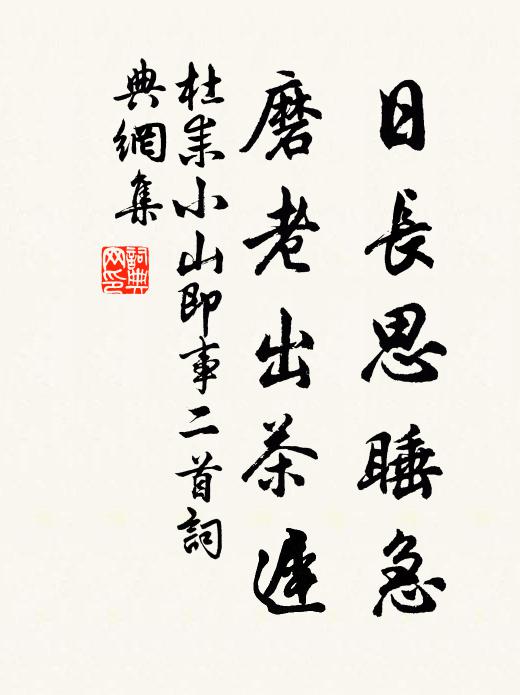 日長思睡急
磨老出茶遲
杜耒小山即事二首詞
典網集
詞典網印